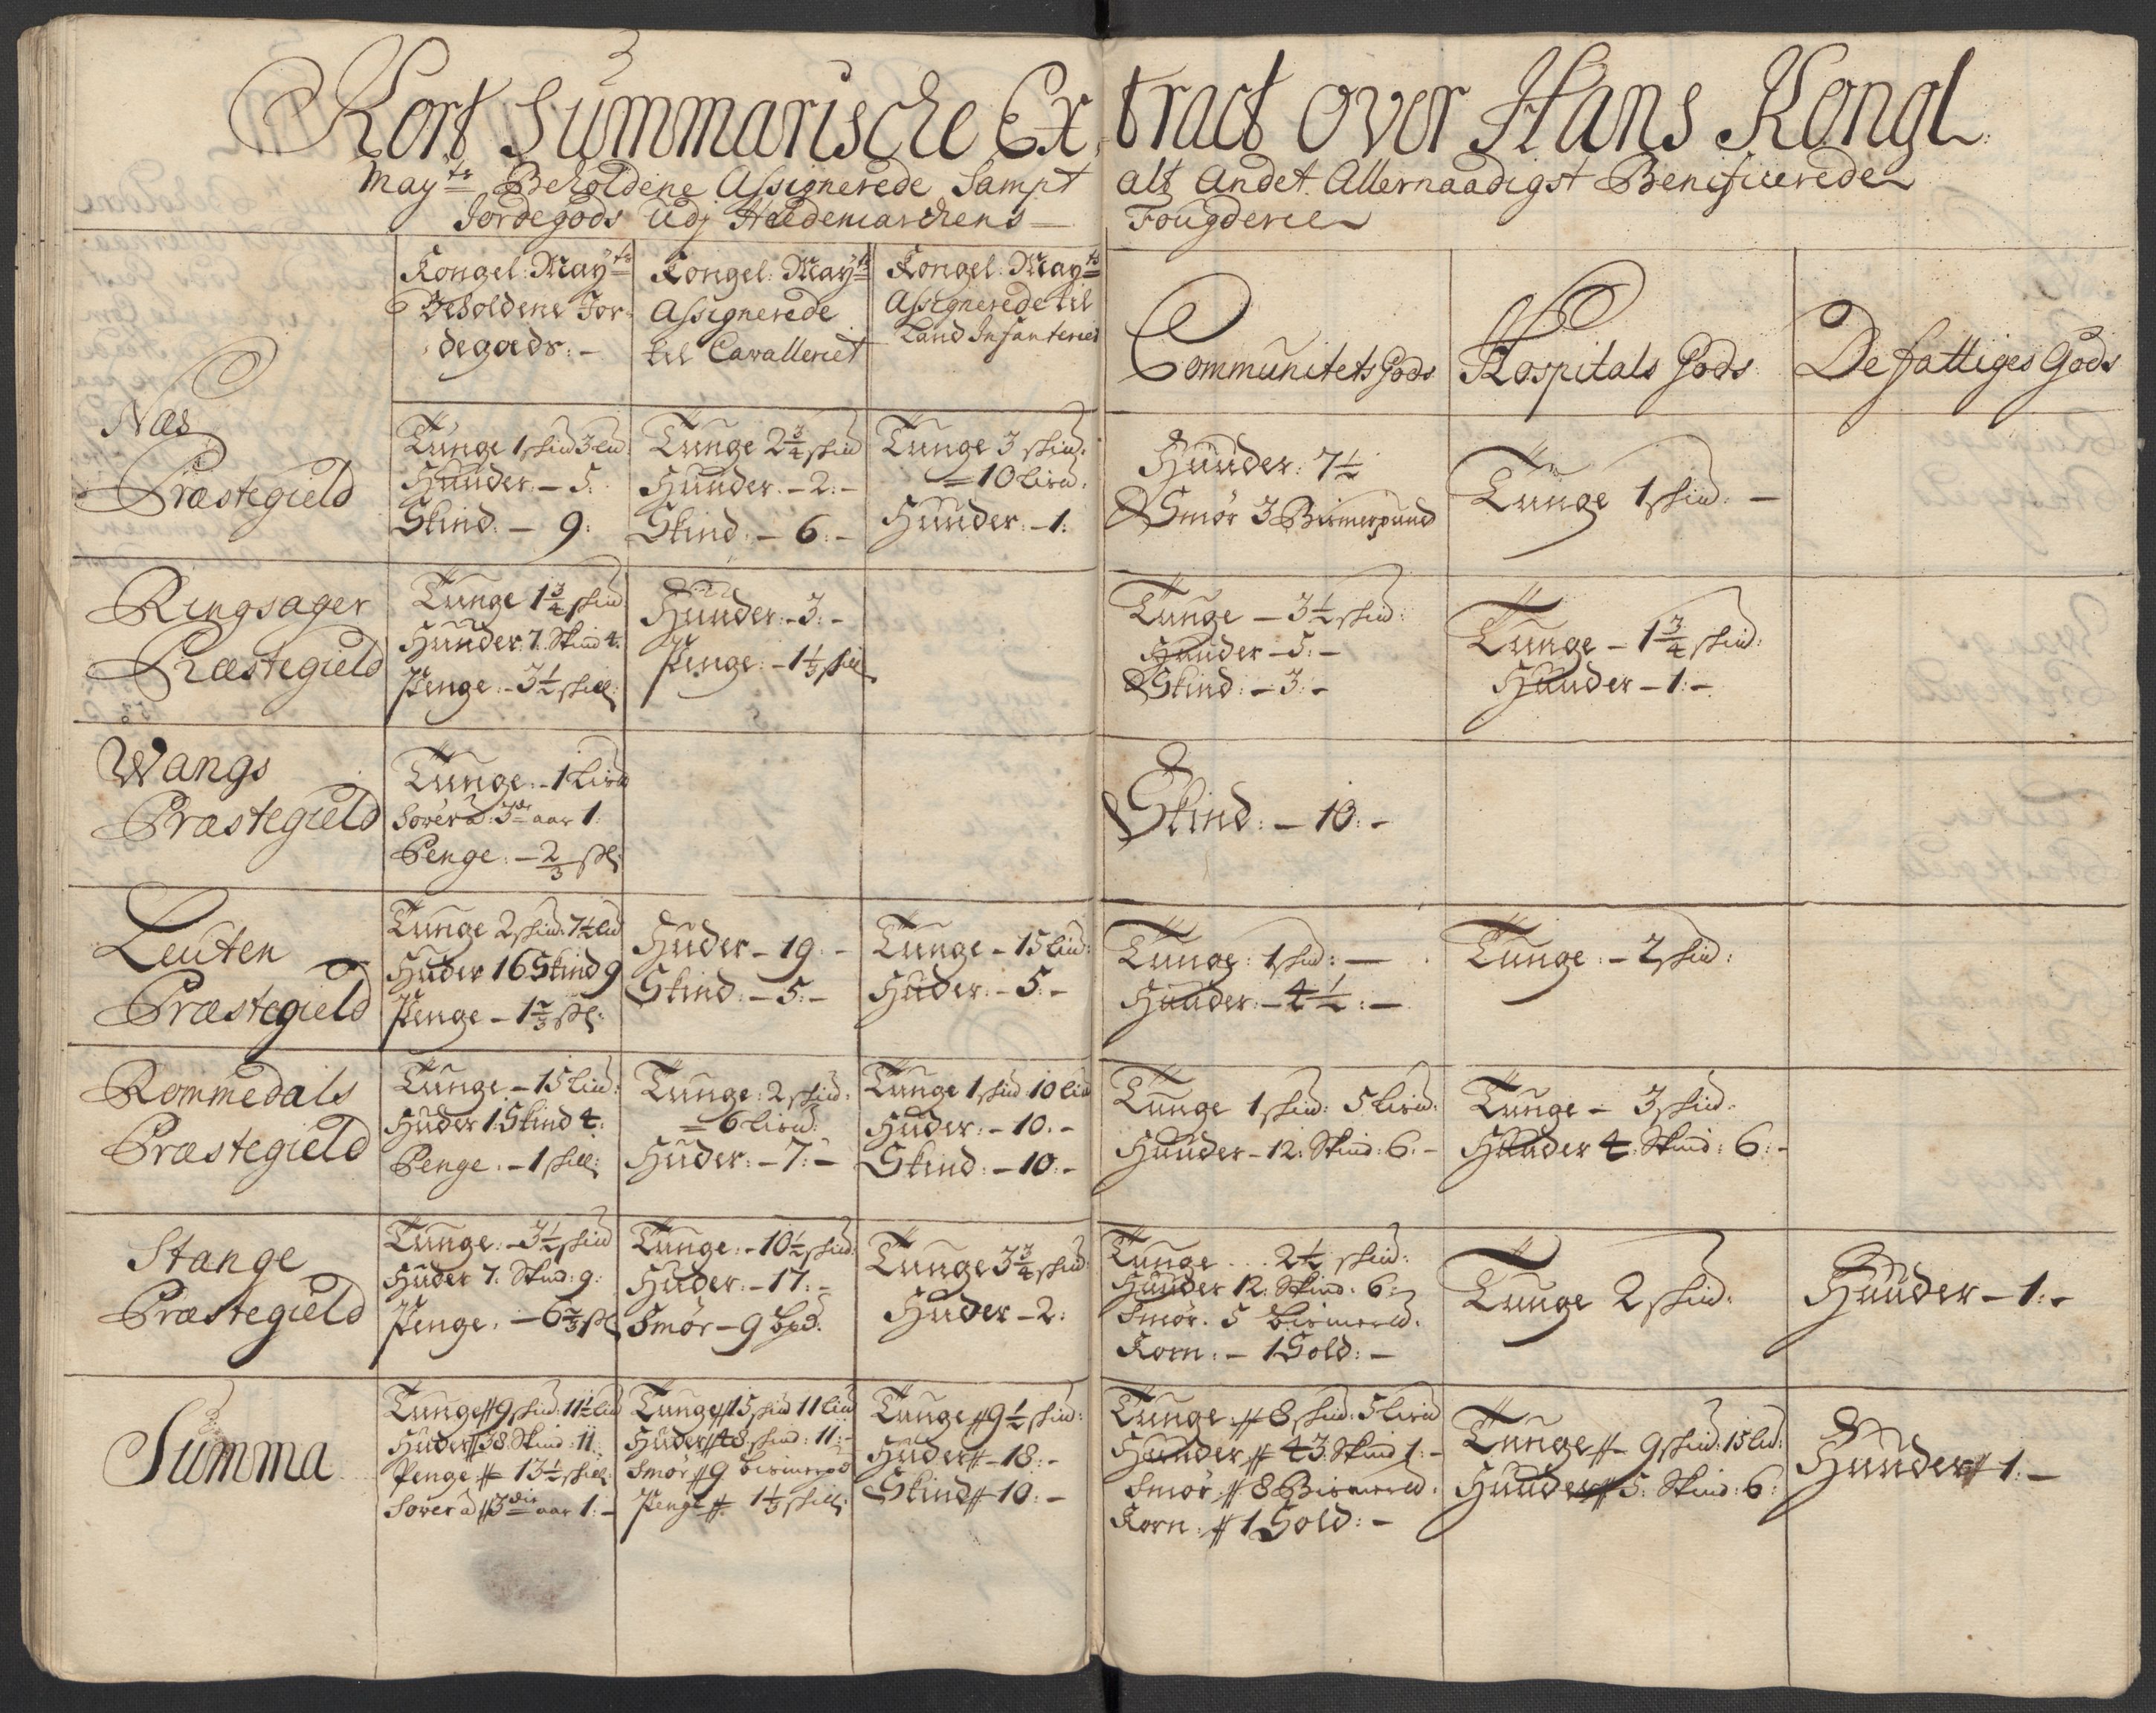 Kort Summarische Extract over Hans Kongl:
Mayts Beholdene Assignerede Sampt alt Andet Allernaadigst Benificerede
Jordegods Udj Hedemarchens Fougderie
Kongel: Mayts
Beholdene Jor-
degods:-
Kongel: Mayts
Assignerede
til Cavalleriet
Kongel: Mayts
Assignerede til
Land Infanteriet
Communitets Gods
Hospitals Gods
De fattiges Gods
Næs
Præstegield
Tunge 1 skud 3 lud
Huuder - 5:
Skind: - 9:
Tunge 2¾ skud
Huuder. - 2:-
Skind: - 6:-
Tunge 3 skud.
= 10 lisd.
Huuder: - 1:
Huuder: 7½
Smør 3 Bismerpund
Tunge 1 skud: -
Ringsager
Præstegield
Tunge 1¾ skud
Huuder 7. Skind 4.
Penge: - 3½ skill:
Huuder: - 3:-
Penge: - 1⅓ skill
Tunge - 3½ skud:
Huuder - 5:-
Skind: - 3:-
Tunge - 1¾ skud:
Huuder - 1:-
Wangs
Præstegield
Tunge: - 1 Lisd
Sover ad: 3de aar 1:
Penge: - ⅔ sk:
Skind: - 10:-
Leuten
Præstegield
Tunge 2 skud: 7½ lud
Huder 16 Skind 9
Penge - 1⅔ sk:
Huder - 19:-
Skind: - 5:-
Tunge - 15 lud:
Huder: - 5:-
Tunge: 1 skud: -
Huuder: - 4½:-
Tunge: - 2 skud:
Rommedals
Præstegield
Tunge - 15 lud:
Huder 1: Skind 4:
Penge: - 1 skill:
Tunge: 2 skud.
= 6 lisd:
Huder: - 7:-
Tunge 1 skud 10 lud
Huder: - 10:-
Skind: - 10:-
Tunge 1 skud: 5 lisd:
Huuder - 12: Skind: 6:-
Tunge - 3 skud:
Huuder 4: Skind: 6:-
Stange
Præstegield
Tunge: - 3½ skud
Huder 7: Skind: 9:
Penge: - 6⅔ sk
Tunge: - 10½ skud:
Huder: - 17:-
Smør - 9 bpd:
Tunge 3¾ skud:
Huder - 2:
Tunge ... 2½ skud:
Huuder 12: Skind: 6:
Smør: 5 Bismerd.
Korn: - 1 Sold:-
Tunge 2 skud:
Huuder - 1:-
Summa
Tunge # 9 skud: 11½ lud
Huder # 38 Skind: 11:
Penge # 13½ skill:
Sover ad # 3die aar 1:-
Tunge # 15 skud 11 lud
Huder # 48 skind: 11:-
Smør # 9 bismerpd
Penge # 1⅓ skill:
Tunge # 9½ skud:
Huder # - 18:-
Skind # 10:-
Tunge: # 8 skud: 5 lisd
Huuder # 43: Skind 1:-
Smør: # 8 Bismerd.
Korn: # 1 Sold:-
Tunge # - 9 skud: 15 lud:
Huuder # 5: Skind: 6:
Huuder # 1:-